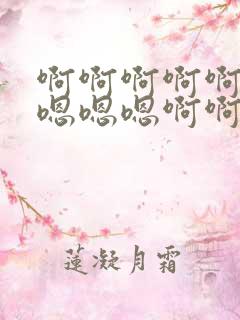 啊啊啊啊啊
嗯嗯嗯啊啊
蓮凝月霜